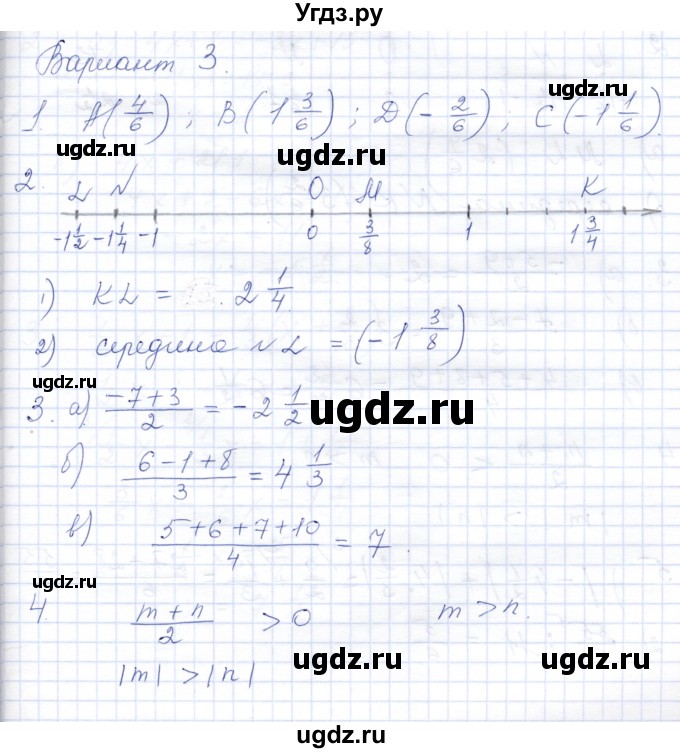 Угдз.ру
ugdz.ru ugdz.ru
Вариант 3.
ugdz.ru
1. A(4/6); B(1 3/6); D(-2/6); C(-1 1/6).
ugdz.ru ugdz.ru
2. L N O M. K
-1 1/2 -1 1/4 -1 0 3/8 1 1 3/4
1) KL = 2 1/4.
ugdz.ru
2) середина NL = (-1 3/8)
ugdz.ru
3. а) (-7+3)/2 = -2 1/2
ugdz.ru
б) (6-1+8)/3 = 4 1/3
в) (5+6+7+10)/4 = 7.
ugdz.ru
4. (m+n)/2 > 0 m > n.
ugdz.ru ugdz.ru
|m| > |n|
ugdz.ru ugdz.ru